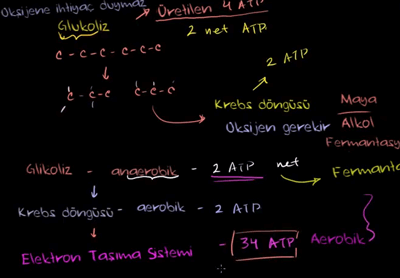 Oksijene ihtiyaç duymaz
Glukoliz
Üretilen 4 ATP
2 net ATP
C - C - C - C - C - C
2 ATP
C - C - C
C - C - C
Krebs döngüsü
Oksijen gerekir
Maya
Alkol
Fermantasy
Glikoliz - anaerobik - 2 ATP net
Fermanta
Krebs döngüsü - aerobik - 2 ATP
Elektron Tasıma Sistemi - 34 ATP Aerobik